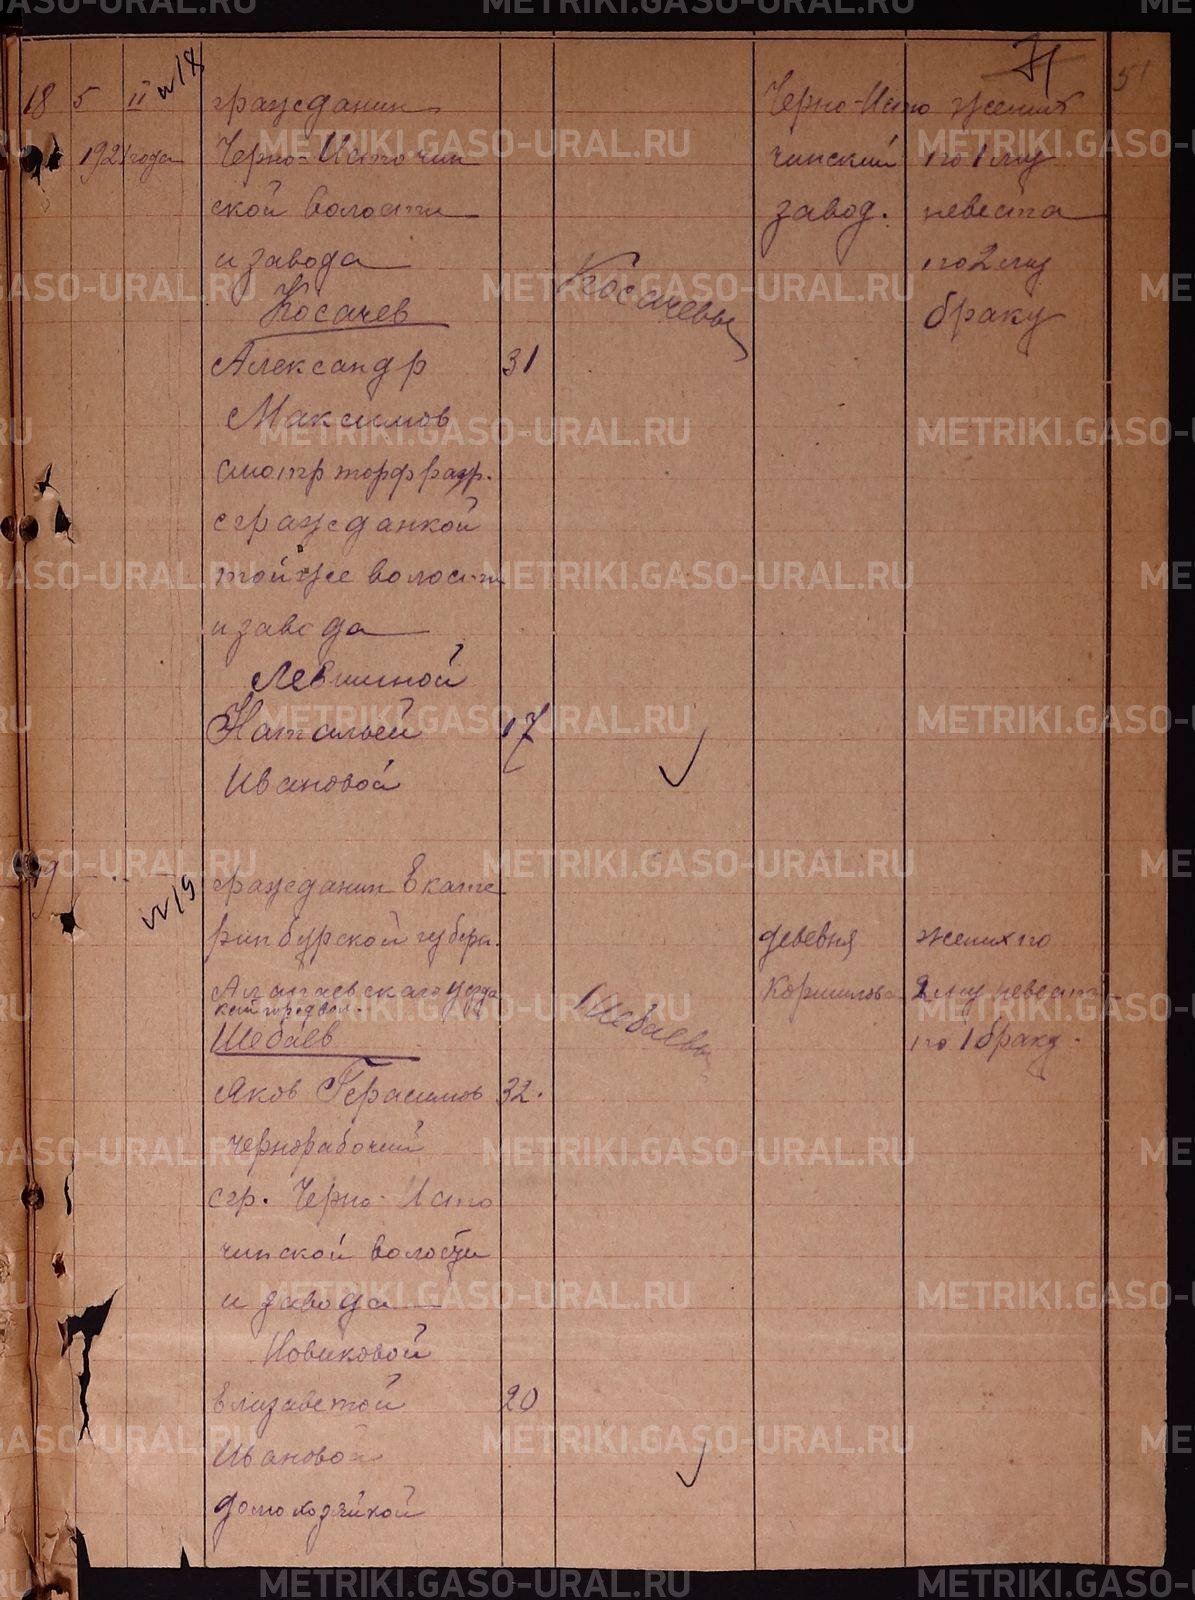 71
51
18 5 II №18
1921 года
гражданин
Черно-Источин
ской волости
и завода
Косачев
Александр 31
Максимов
смотр торф разр.
с гражданкой
той же волости
и завода
Левшиной
Натальей 17
Ивановой
Косачевы
Черно-Исто
чинский
завод.
жених
по 1 му
невеста
по 2 му
браку
19 №19
гражданин Екате
ринбургской губерн.
Алапаевского уезда
Шебаев
Яков Герасимов 32.
чернорабочий
с гр. Черно-Исто
чинской волости
и завода
Новиковой
Елизаветой 20
Ивановой
домохозяйкой
Шебаевы
деревня
Кормилова
жених по
2 му невеста
по 1 браку.
METRIKI.GASO-URAL.RU